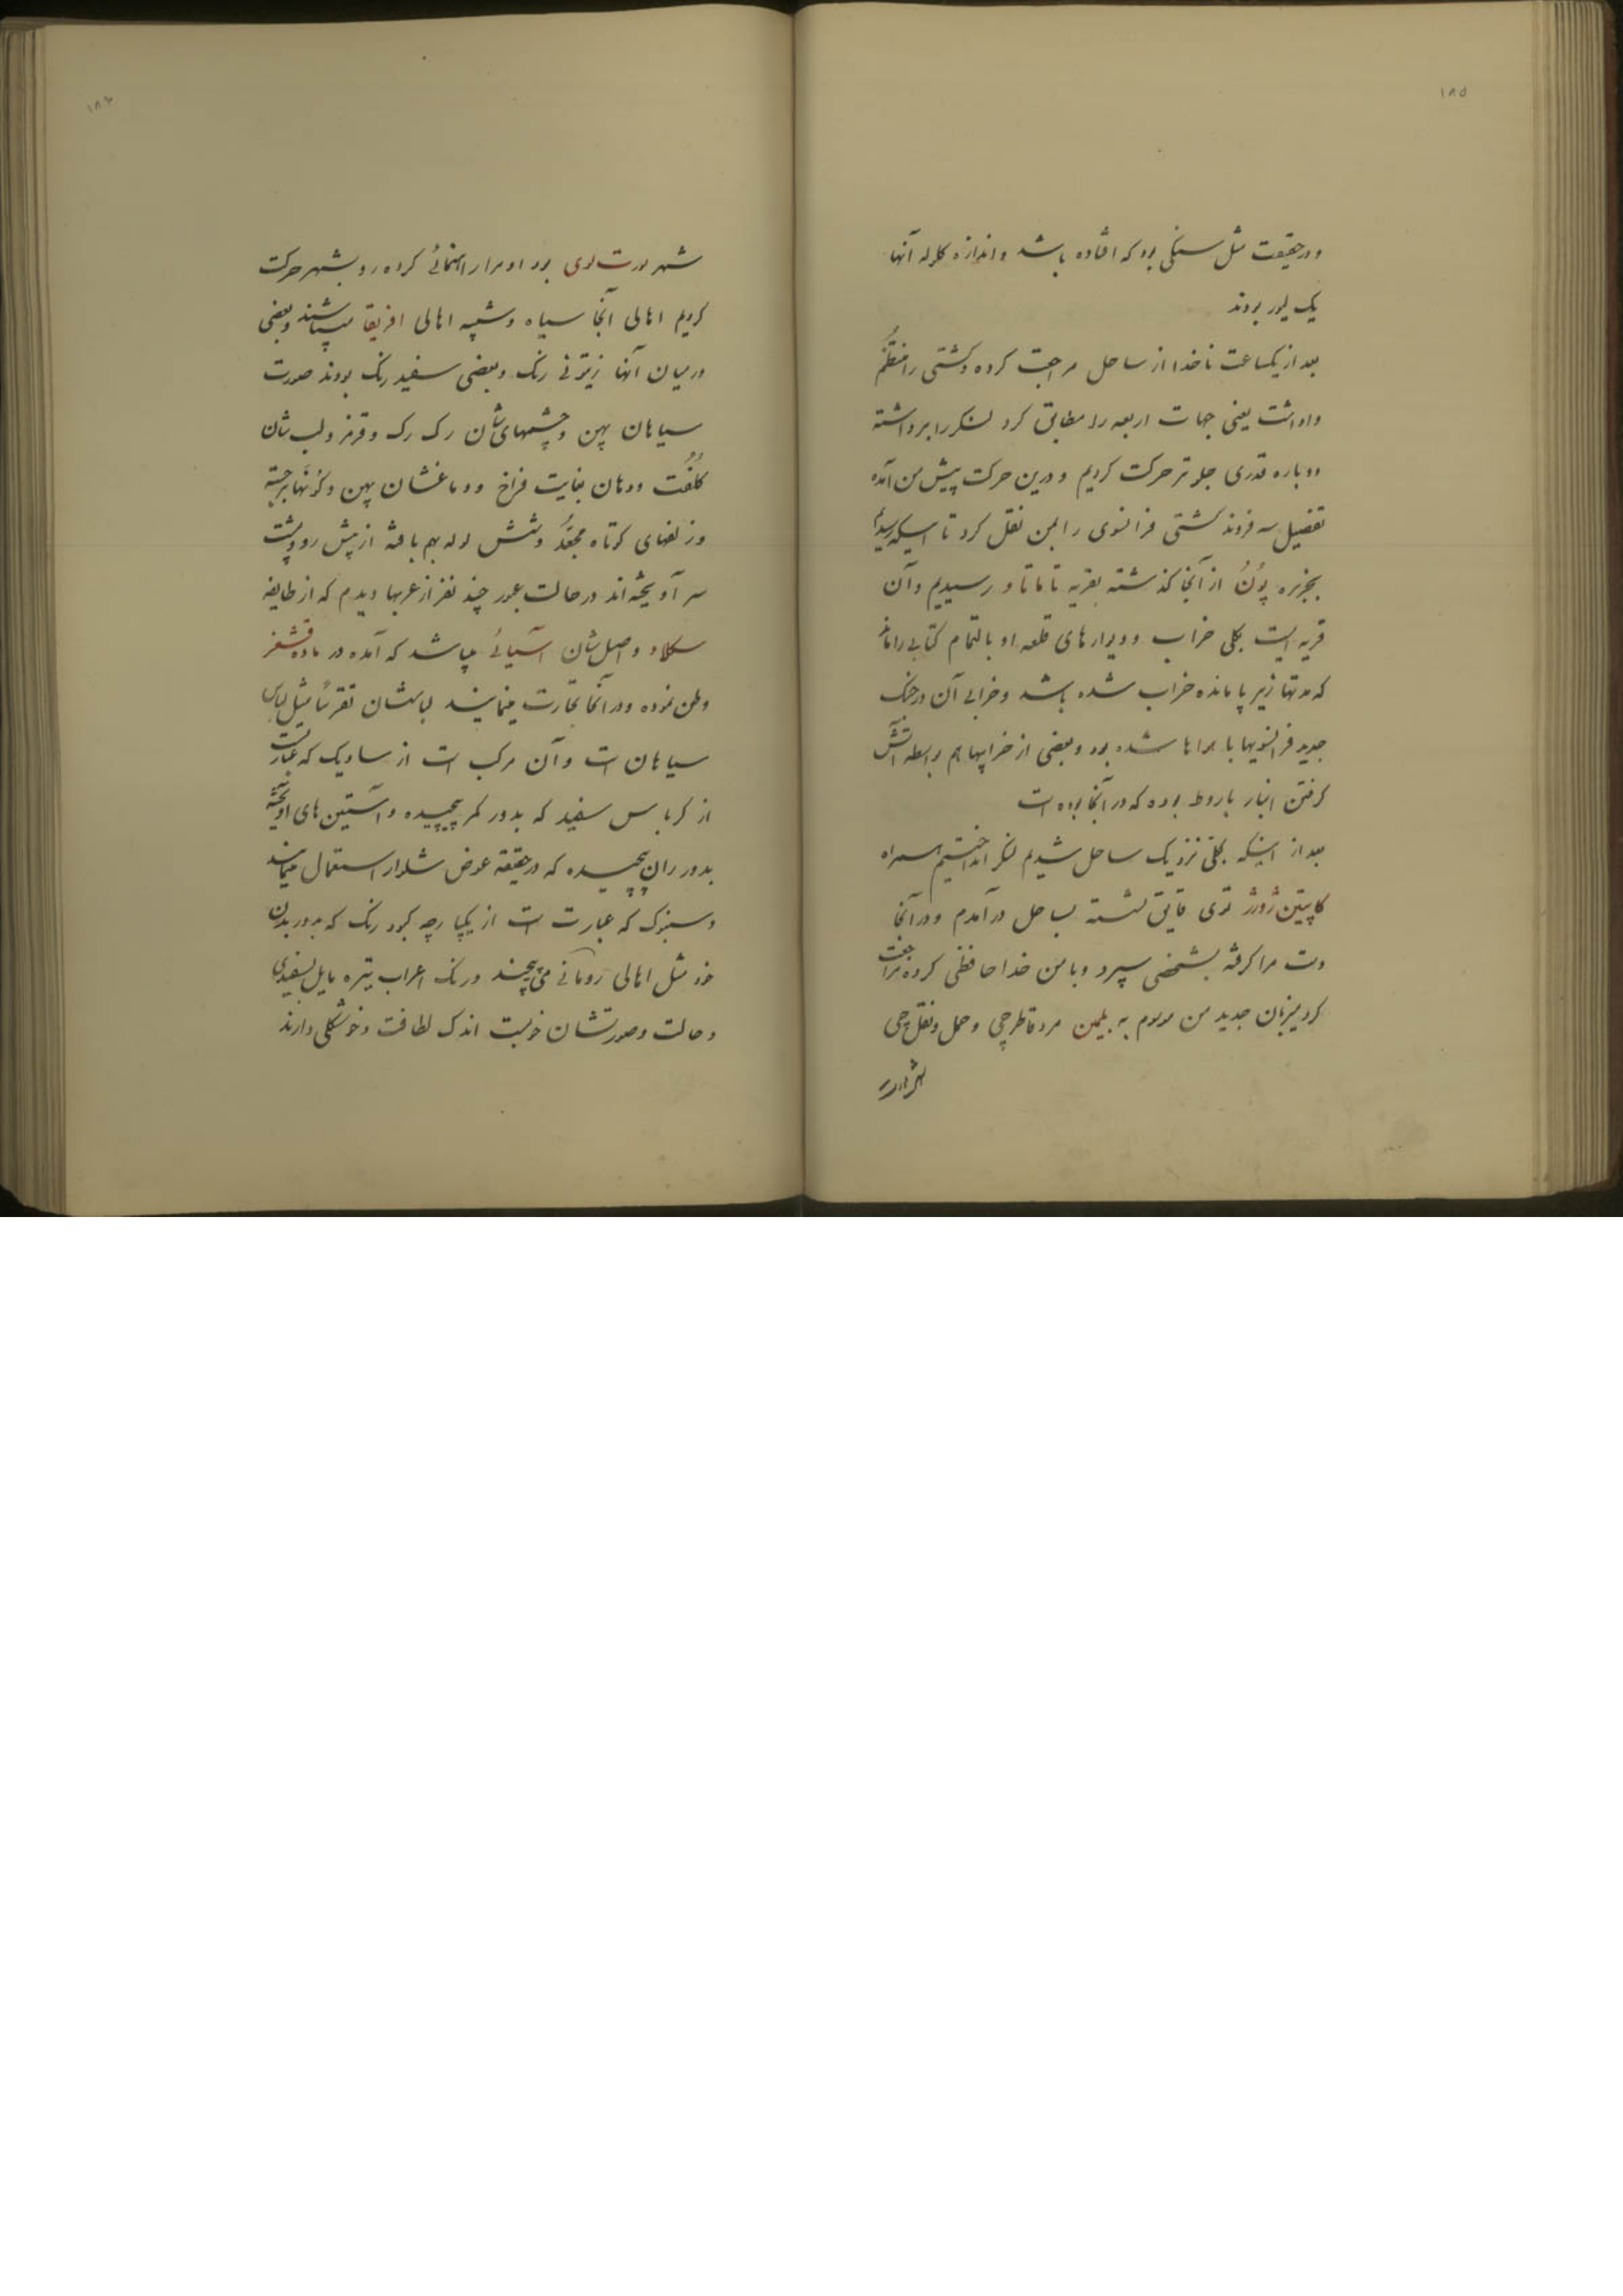 ۱۸۵
ودر حقیقت مثل سنگی بود که افتاده باشد و اندازه کلوله آنها
یک لیور بودند
بعد از یکساعت ناخدا از ساحل مراجعت کرده وکشتی را منظم
واداشت یعنی جهات اربعه را مطابق کرد لنکر را برداشته
دوباره قدری جلوتر حرکت کردیم و درین حرکت پیش من آمده
تفصیل سه فروند کشتی فرانسوی را بمن نقل کرد تا اینکه رسیدیم
بجزیره پوُنُ از آنجا کذشته بقریه تاماتاو رسیدیم وآن
قریه ایست بکلی خراب ودیوارهای قلعه او بالتمام کتابی را ماند
که مدتها زیر پا مانده خراب شده باشد وخرابی آن در جنک
جدید فرانسویها با هواها شده بود وبعضی از خرابیها هم بواسطه آتش
کرفتن انبار باروط بوده که در آنجا بوده است
بعد از اینکه بکلی نزدیک ساحل شدیم لنکر انداختیم همراه
کاپیتن ژورژ توی قایق نشسته بساحل در آمدم ودر آنجا
دست مرا کرفته بشخصی سپرد وبا من خدا حافظی کرده مراجعت
کرد میزبان جدید من موسوم به بلیمن مرد قاطرچی وحمل ونقل چی
۱۸۶
شهر پورت لوی بود او مرا راهنمائی کرده رو بشهر حرکت
کردیم اهالی آنجا سیاه وشبیه اهالی افریقا میباشند وبعضی
در میان آنها زیتونی رنک وبعضی سفید رنک بودند صورت
سیاهان پهن وچشمهای شان رک رک وقرمز ولب شان
کلُفُت ودهان بغایت فراخ ودماغشان پهن وکونها برجسته
وزلفهای کوتاه مجعّد وشش لوله بهم بافته از پیش رو وپشت
سر آویخته اند در حالت عبور چند نفر از عربها دیدم که از طایفه
سکلاو واصل شان آسیائی میباشد که آمده در ماده قشغز
وطن نموده ودر آنجا تجارت مینمایند لباسشان تقریباً مثل لباس
سیاهان است وآن مرکب است از سادیک که عبارتست
از کرباس سفید که بدور کمر پیچیده وآستین های آویخته
بدور ران پیچیده که در حقیقة عوض شلوار استعمال مینمایند
وسنبوک که عبارت است از یکپارچه کبود رنک که بدور بدن
خود مثل اهالی رومانی می پیچند ورنک اعراب تیره مایل بسفیدی
وحالت وصورتشان خوبست اندک لطافت وخوشکلی دارند